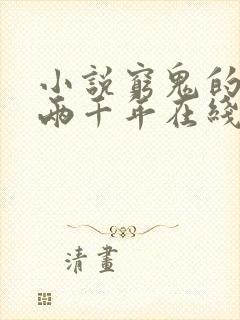 小說窮鬼的
兩千年在綫
清畫